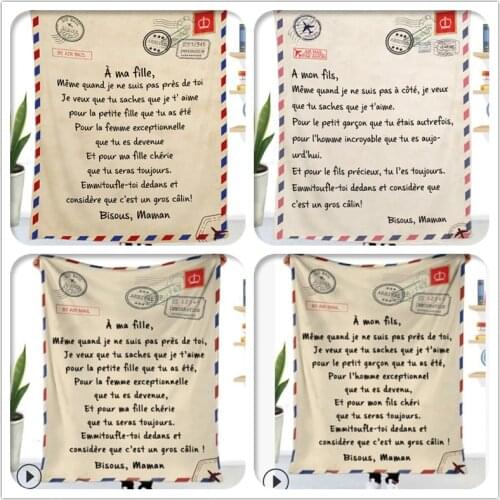 BY AIR MAIL
À ma fille,
Même quand je ne suis pas près de toi
Je veux que tu saches que je t' aime
pour la petite fille que tu as été
Pour la femme exceptionnelle
que tu es devenue
Et pour ma fille chérie
que tu seras toujours.
Emmitoufle-toi dedans et
considère que c'est un gros câlin!
Bisous, Maman
À mon fils,
Même quand je ne suis pas à côté, je veux
que tu saches que je t'aime.
Pour le petit garçon que tu étais autrefois,
pour l'homme incroyable que tu es aujo-
urd'hui.
Et pour le fils précieux, tu l'es toujours.
Emmitoufle-toi dedans et considère que
c'est un gros câlin!
Bisous, Maman
BY AIR MAIL
À ma fille,
Même quand je ne suis pas près de toi,
Je veux que tu saches que je t'aime
pour la petite fille que tu as été,
Pour la femme exceptionnelle
que tu es devenue,
Et pour ma fille chérie
que tu seras toujours.
Emmitoufle-toi dedans et
considère que c'est un gros câlin !
Bisous, Maman
BY AIR MAIL
À mon fils,
Même quand je ne suis pas près de toi,
Je veux que tu saches que je t'aime
pour le petit garçon que tu as été,
Pour l'homme exceptionnel
que tu es devenu,
Et pour mon fils chéri
que tu seras toujours.
Emmitoufle-toi dedans et
considère que c'est un gros câlin !
Bisous, Maman